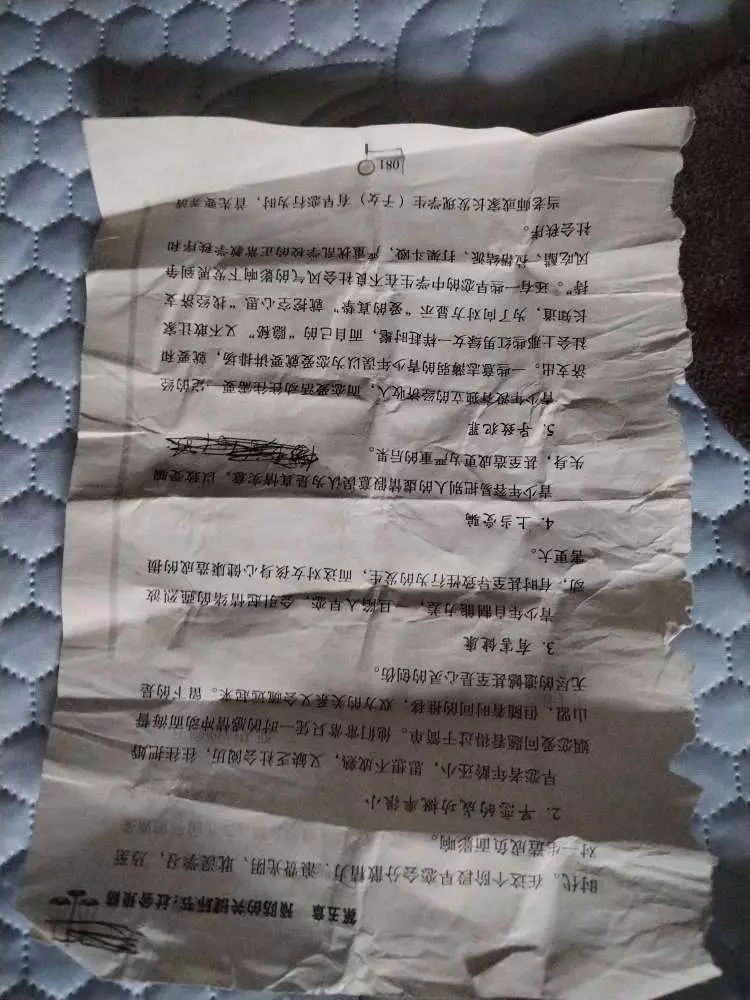 第五章 预防的关键环节:社会预防
时代。在这个阶段早恋会分散精力、浪费光阴、耽误学习，乃至
对一生造成负面影响。
2. 早恋的成功概率很小
早恋者年龄还小，思想不成熟，又缺乏社会阅历，往往把婚
姻恋爱问题看得过于简单。他们常常只凭一时的感情冲动而海誓
山盟，但随着时间的推移，双方的关系又会疏远起来。留下的是
无尽的遗憾甚至是心灵的创伤。
3. 有害健康
青少年自制能力差，一旦陷入早恋，会引起情绪的强烈波
动，有时甚至导致性行为的发生，而这对女孩身心健康造成的损
害更大。
4. 上当受骗
青少年容易把别人的虚情假意误认为是真情实意，以致受骗
失身，甚至造成更为严重的后果。
5. 导致犯罪
青少年没有独立的经济收入，而恋爱活动往往需要一定的经
济支出。一些意志薄弱的青少年误以为恋爱就要讲排场，就要和
社会上那些红男绿女一样赶时髦，而自己的“隐秘”又不敢让家
长知道，为了向对方显示“爱的真挚”就挖空心思“找经济支
持”。还有一些早恋的中学生在不良社会风气的影响下发展到争
风吃醋、拉帮结派、打架斗殴，严重扰乱学校的正常教学秩序和
社会秩序。
当老师或家长发现学生（子女）有早恋行为时，首先要弄清
081